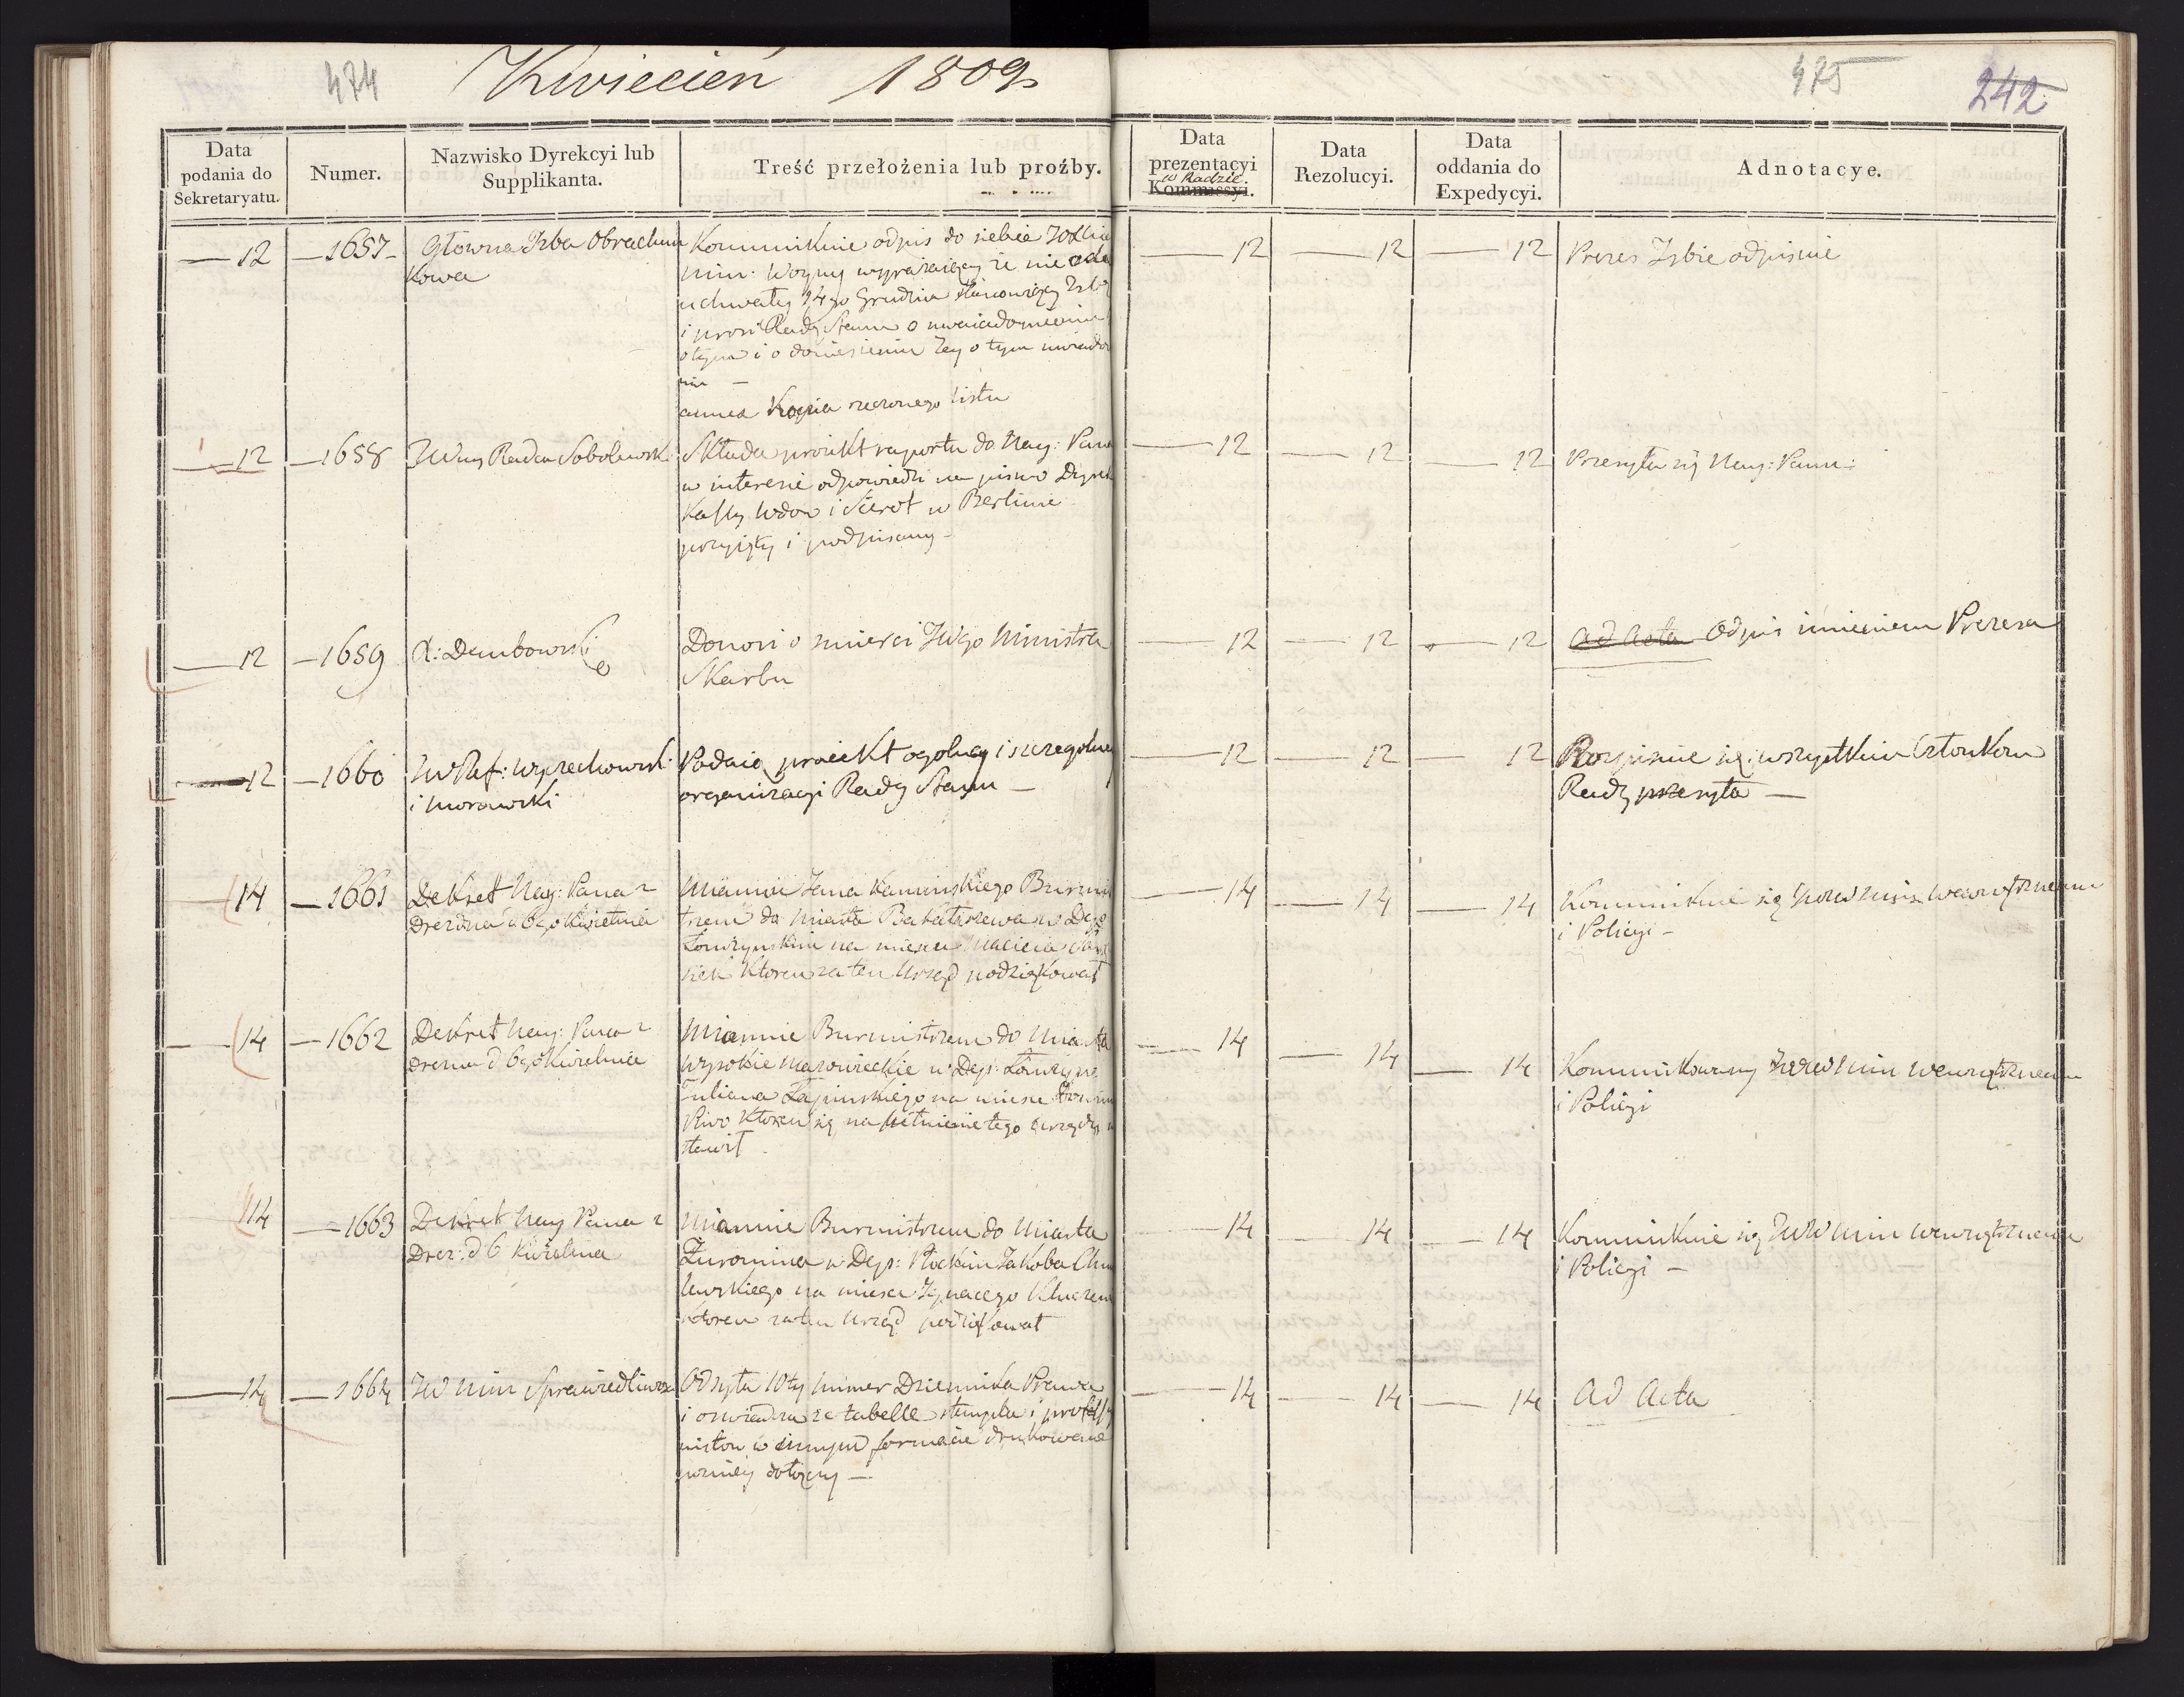 474 Kwiecień 1809
475
242
Data podania do Sekretaryatu.
Numer.
Nazwisko Dyrekcyi lub Supplikanta.
Treść przełożenia lub proźby.
Data prezentacyi w Radzie. Kommissyi.
Data Rezolucyi.
Data oddania do Expedycyi.
Adnotacye.
12 — 1657 — Główna Izba Obrachun
kowa
Kommunikuie odpis do siebie
Min: Woyny wyrażaiący że nie
uchwały 14go Grudnia stanowiący
i prosi Rady Stanu o uwiadomienie
o tym i o doniesieniu Jey o tym
nia —
annex Kopia rzeczonego listu
12 12 12 Prezes Izbie odpisuie
12 — 1658 JWny Radca Sobolewski
Składa proiekt raportu do Nay: Pana
w interesie odpowiedzi na pismo Dyrek
Kassy Wdow i Sierot w Berlinie
przyięty i podpisany —
12 12 12 Przesyła się Nay: Panu:
12 — 1659 Dembowski
Donosi o smierci JWgo Ministra
Skarbu
12 12 12 Ad Acta Odpis imieniem Prezesa
12 — 1660 JW Ref: Wyczechowski
i Morawski
Podaie proiekt ogolney i szczegolney
organizacyi Rady Stanu —
12 12 12 Rozpisuie się wszystkim Członkom
Rady przesyła —
14 — 1661 Dekret Nay: Pana z
Drezdna d 6go Kwietnia
Mianuie Jana Kaminskiego Burmis
trzem do Miasta w Dep
Łomżynskim na miescu Macieia
siek ktoren za ten Urząd podziękował
14 14 14 Kommunikuie się JWW Min Wewnętrznemu
i Policyi —
14 — 1662 Dekret Nay: Pana z
Drezna d 6go Kwietnia
Mianuie Burmistrzem do Miasta
Wysokie Mazowieckie w Dep: Łomżyn
Juliana na miescu
Piwo ktoren się na pełnienie tego urzędu
stawił
14 14 14 Kommunikowany JWW Min Wewnętrznemu
i Policyi
14 — 1663 Dekret Nay Pana z
Drez: d 6 Kwietnia
Mianuie Burmistrzem do Miasta
Żuromina w Dep: Płockim Jakoba
lewskiego na miescu Ignacego
ktoren za ten Urząd podziękował
14 14 14 Kommunikuie się JWW Min Wewnętrznemu
i Policyi —
14 — 1664 JW Min Sprawiedliwos
Odsyła 10ty Numer Dziennika Prawa
i oswiadcza że tabelle stempla i profess
nistow w innym formacie drukowane
pozniey dołączy —
14 14 14 Ad Acta